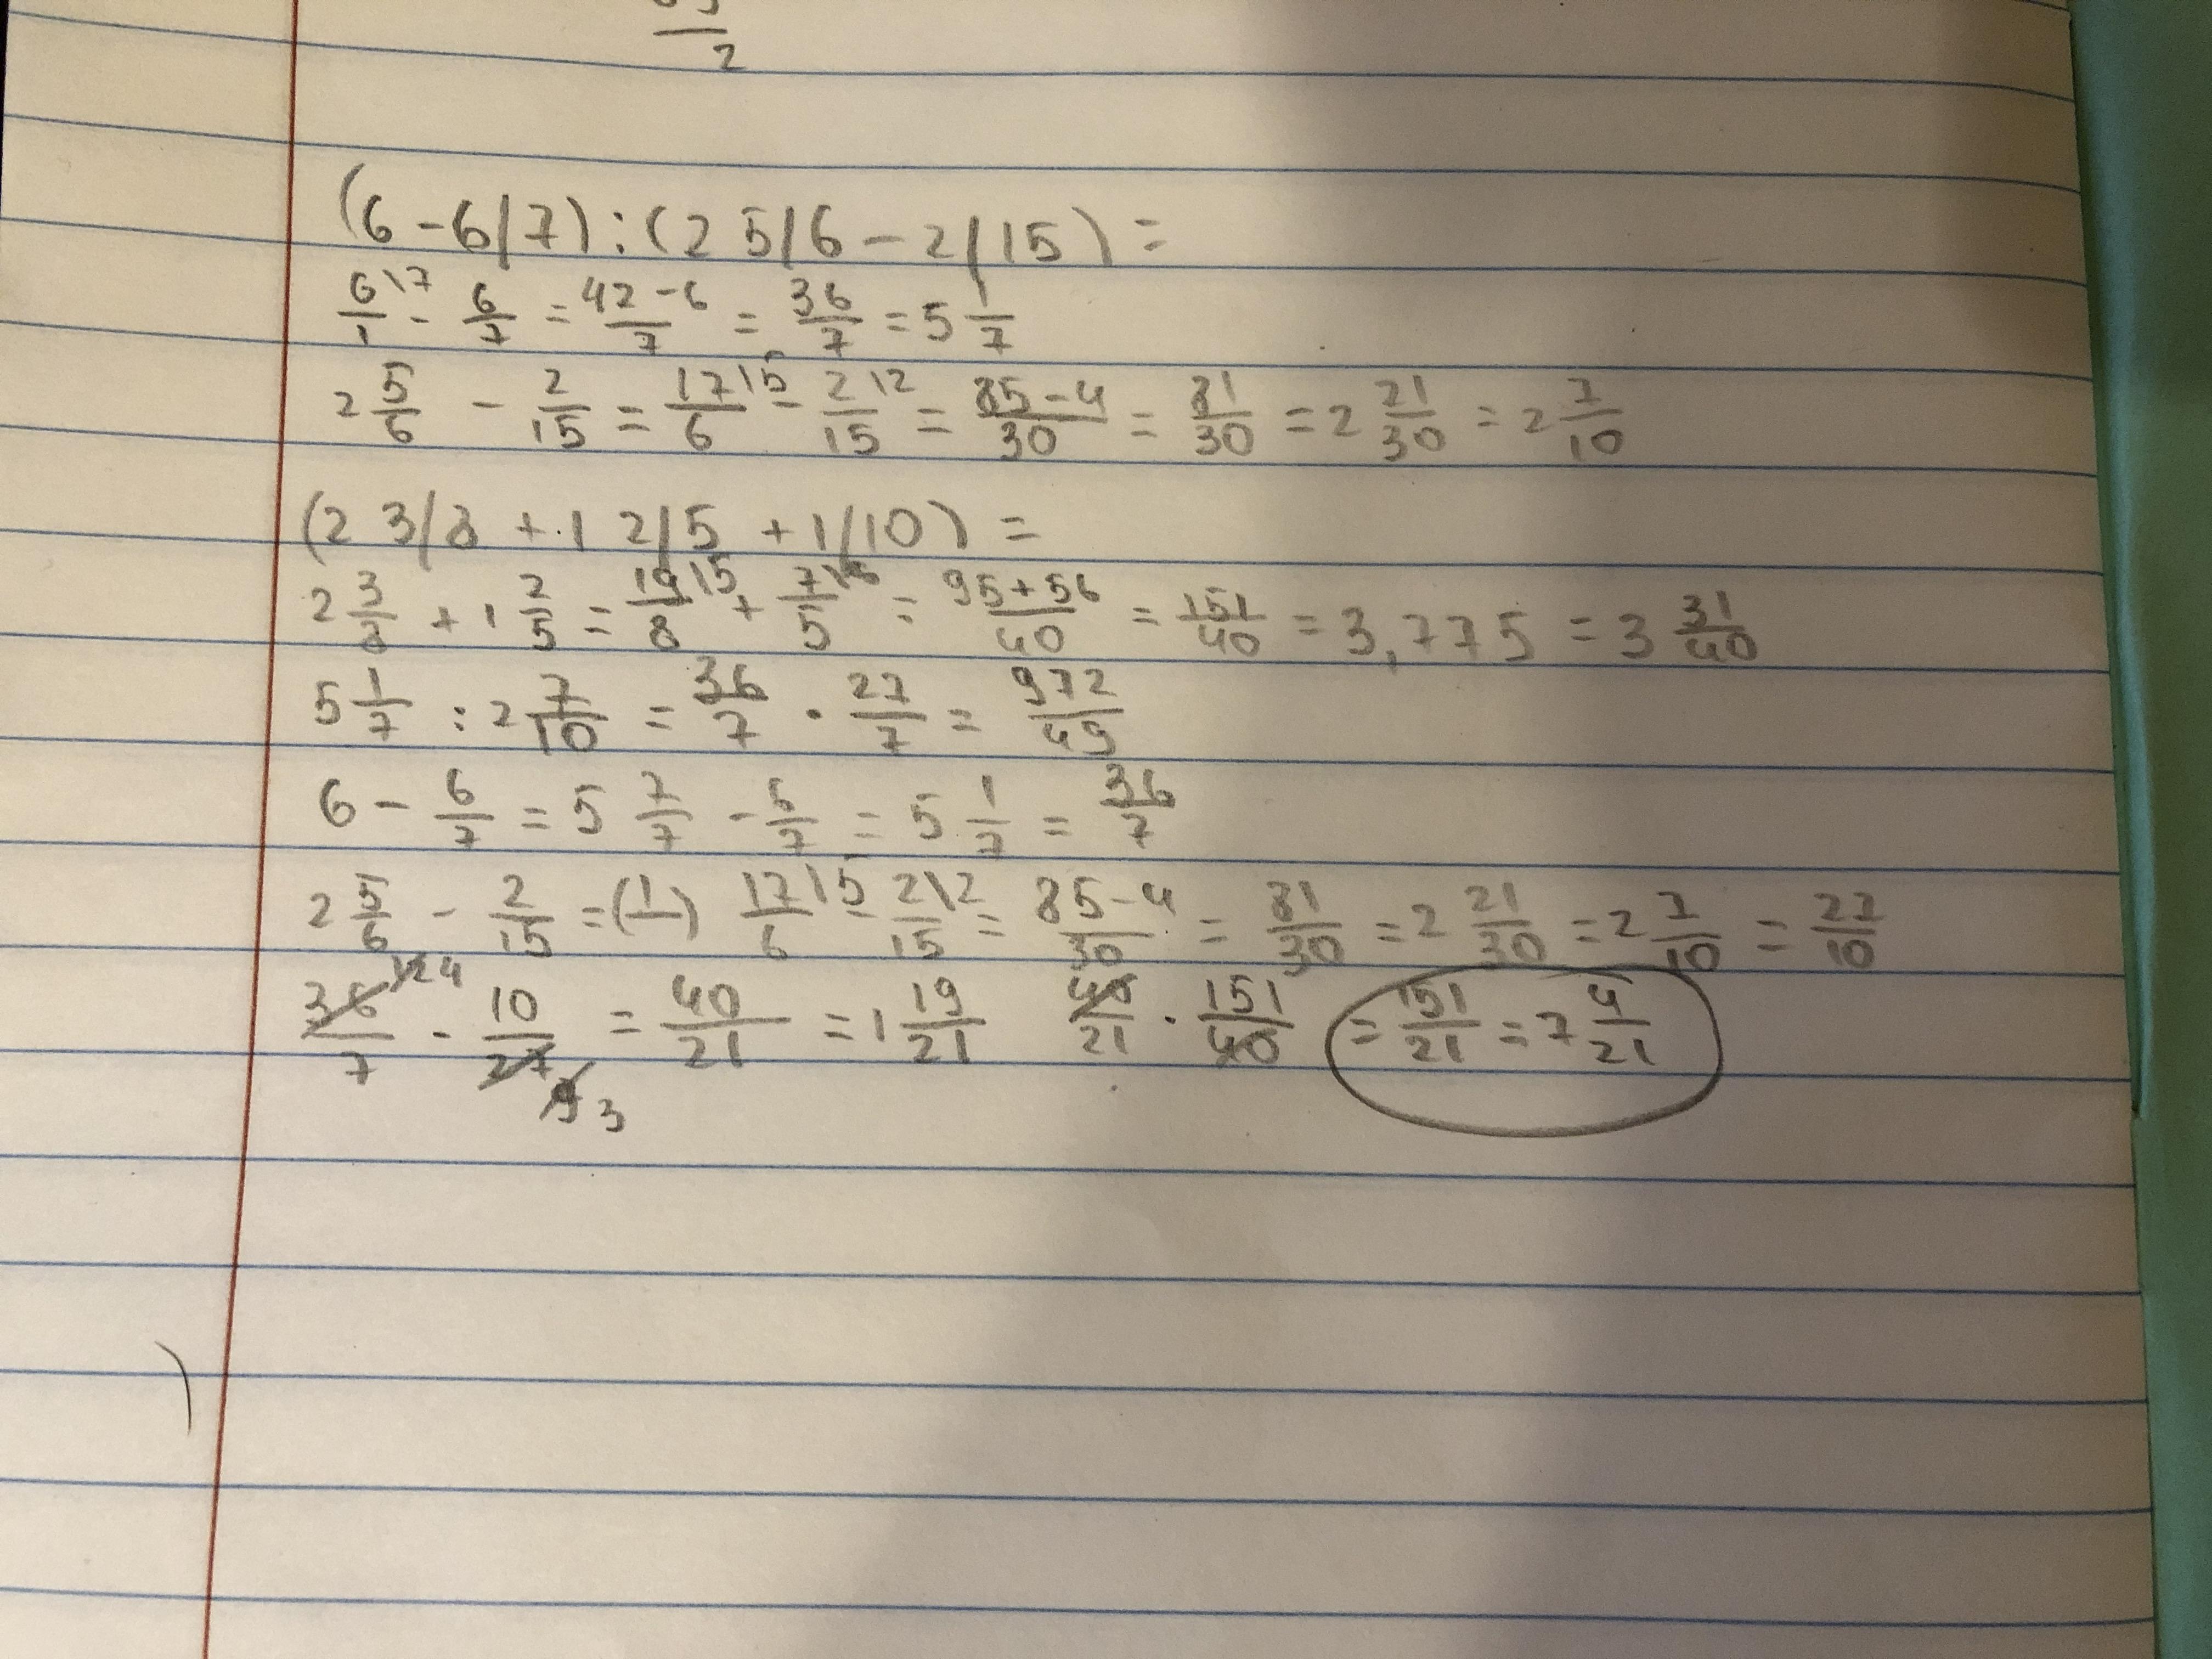 2
(6 - 6/7) : (2 5/6 - 2/15) =
6/1 \7 - 6/7 = 42-6/7 = 36/7 = 5 1/7
2 5/6 - 2/15 = 17/6 \5 - 2/15 \2 = 85-4/30 = 81/30 = 2 21/30 = 2 7/10
(2 3/8 + 1 2/5 + 1/10) =
2 3/8 + 1 2/5 = 19/8 \5 + 7/5 \8 = 95+56/40 = 151/40 = 3,775 = 3 31/40
5 1/7 : 2 7/10 = 36/7 · 27/7 = 972/49
6 - 6/7 = 5 7/7 - 6/7 = 5 1/7 = 36/7
2 5/6 - 2/15 = (1/) 17/6 \5 - 2/15 \2 = 85-4/30 = 81/30 = 2 21/30 = 2 7/10 = 27/10
36/7 12 4 · 10/27 9 3 = 40/21 = 1 19/21 40/21 · 151/40 = 151/21 = 7 4/21